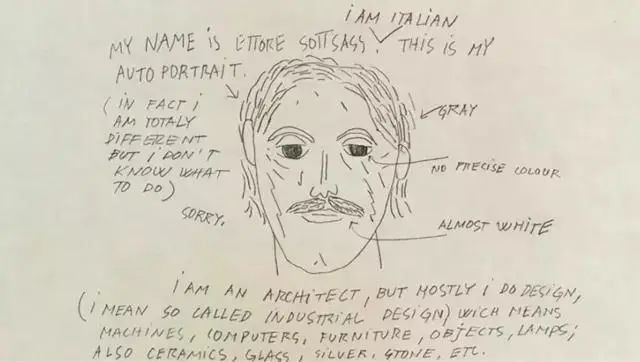 I AM ITALIAN
MY NAME IS ETTORE SOTTSASS. THIS IS MY
AUTO PORTRAIT.
(IN FACT I
AM TOTALY
DIFFERENT
BUT I DON'T
KNOW WHAT
TO DO)
SORRY.
GRAY
NO PRECISE COLOUR
ALMOST WHITE
I AM AN ARCHITECT, BUT MOSTLY I DO DESIGN,
(I MEAN SO CALLED INDUSTRIAL DESIGN) WICH MEANS
MACHINES, COMPUTERS, FURNITURE, OBJECTS, LAMPS;
ALSO CERAMICS, GLASS, SILVER, STONE, ETC.